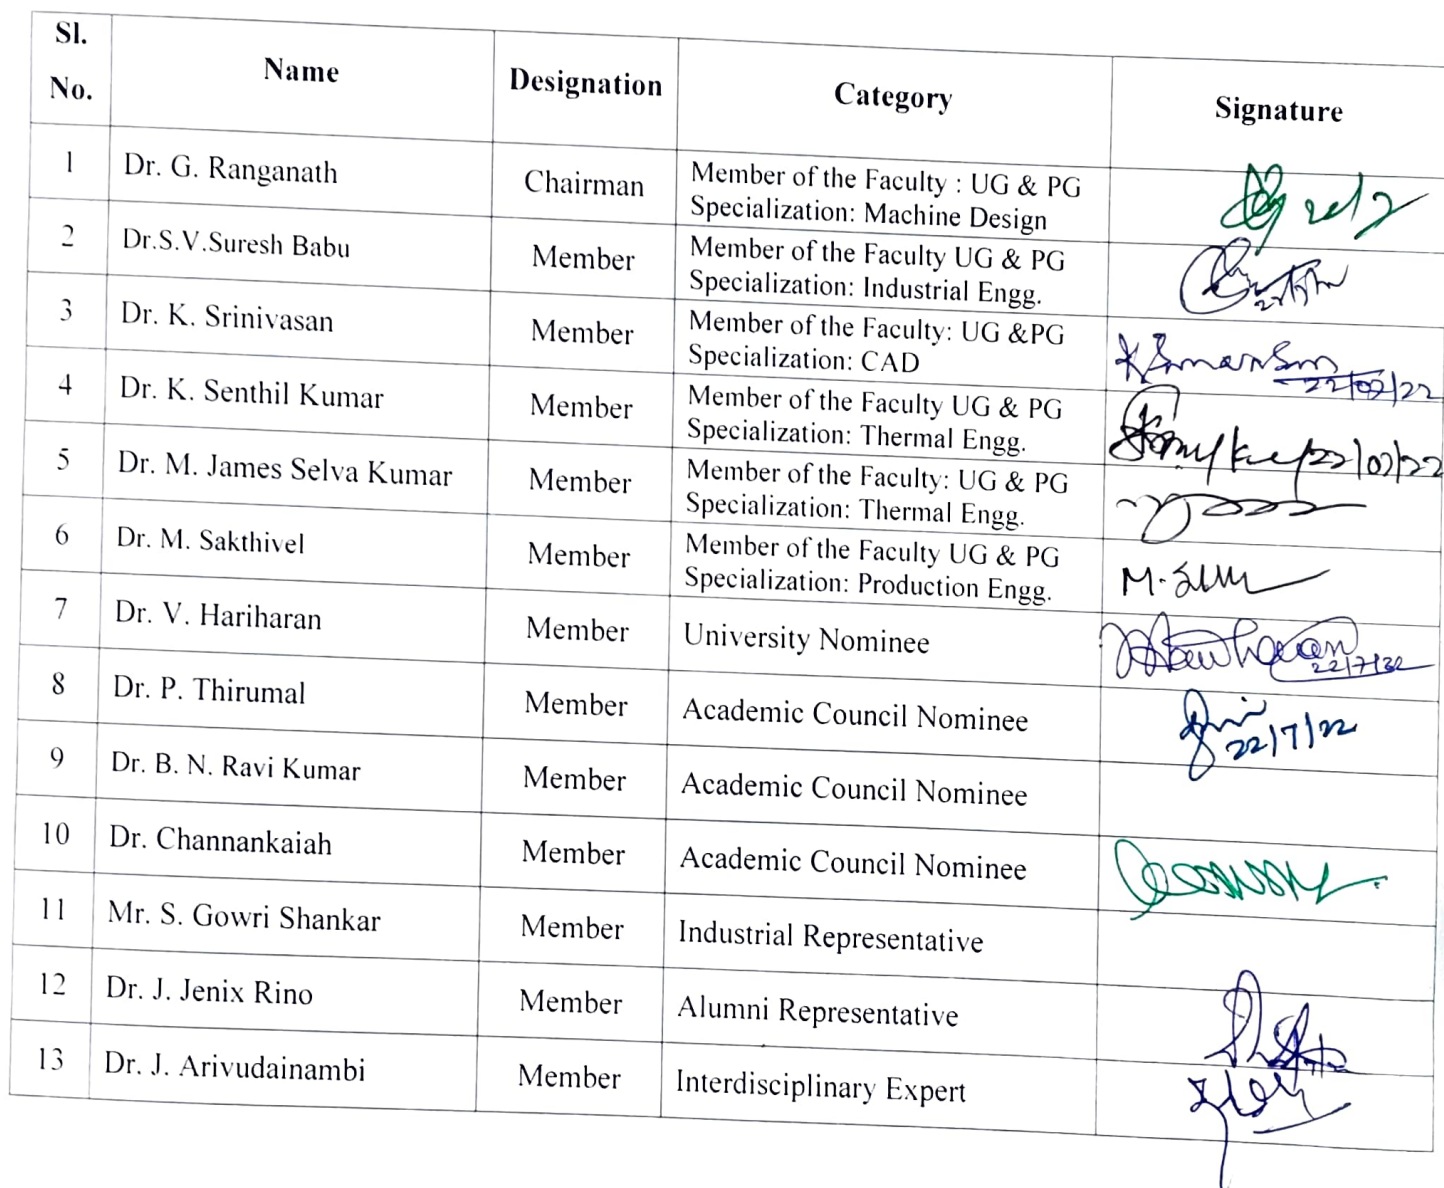 Sl. No. Name Designation Category Signature
1 Dr. G. Ranganath Chairman Member of the Faculty : UG & PG
Specialization: Machine Design
2 Dr.S.V.Suresh Babu Member Member of the Faculty UG & PG
Specialization: Industrial Engg.
3 Dr. K. Srinivasan Member Member of the Faculty: UG &PG
Specialization: CAD
22/07/22
4 Dr. K. Senthil Kumar Member Member of the Faculty UG & PG
Specialization: Thermal Engg.
22/07/22
5 Dr. M. James Selva Kumar Member Member of the Faculty: UG & PG
Specialization: Thermal Engg.
6 Dr. M. Sakthivel Member Member of the Faculty UG & PG
Specialization: Production Engg.
7 Dr. V. Hariharan Member University Nominee
8 Dr. P. Thirumal Member Academic Council Nominee
22/7/22
9 Dr. B. N. Ravi Kumar Member Academic Council Nominee
10 Dr. Channankaiah Member Academic Council Nominee
11 Mr. S. Gowri Shankar Member Industrial Representative
12 Dr. J. Jenix Rino Member Alumni Representative
13 Dr. J. Arivudainambi Member Interdisciplinary Expert